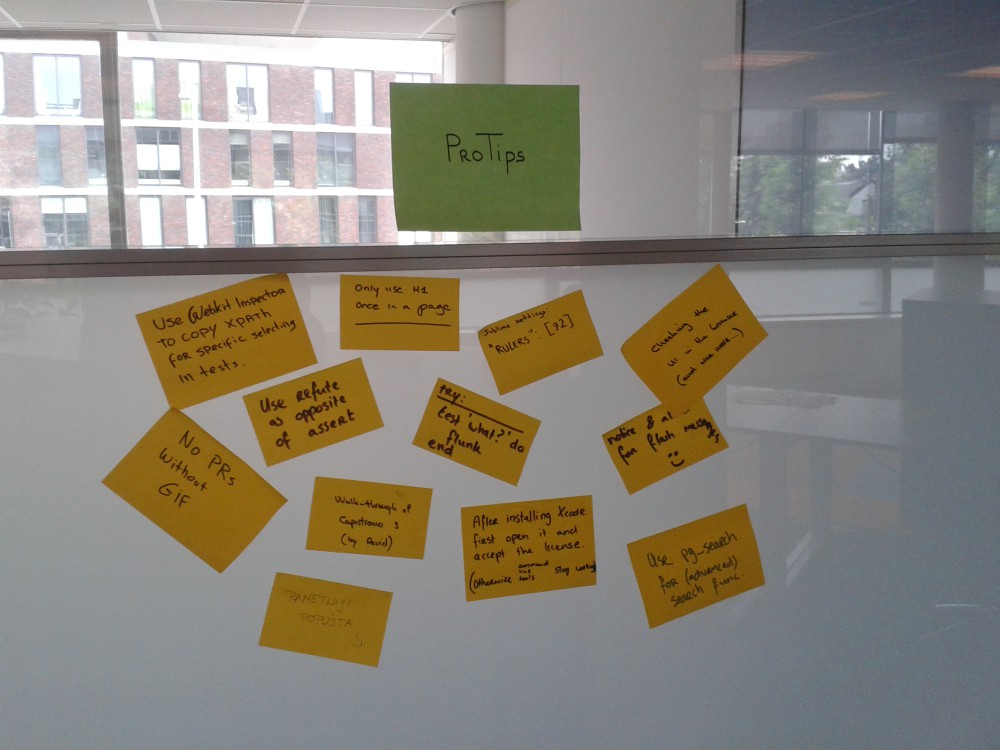 ProTips
Use Webkit Inspector
to COPY XPATH
for specific selecting
in tests.
Only use H1
once in a page
Sublime settings:
"RULERS": [92]
Checking the
UI in the browser
(and use more...)
Use Refute
as opposite
of assert
try:
test 'what?' do
flunk
end
notice & al
for flash messages
No PRs
without
GIF
Walk-through of
Capistrano 3
(by David)
After installing Xcode
first open it and
accept the license.
(Otherwise command line tools stop working)
Use pg_search
for (advanced)
search func.
PAMETNIJI
POPUŠTA